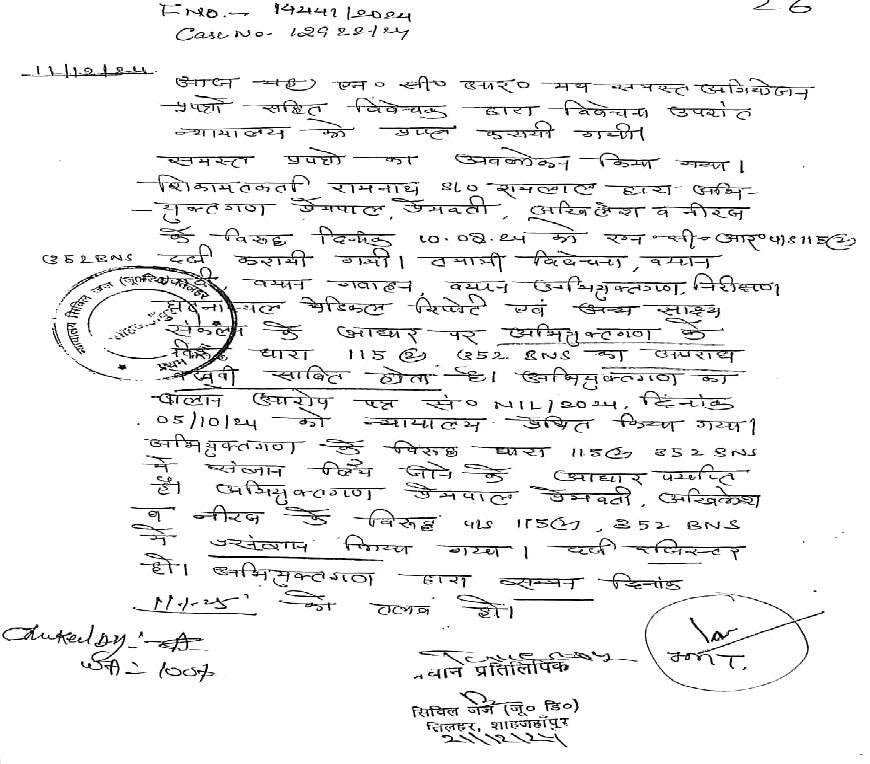 F NO. - 14441/2024
26
Case No- 12922/24
11/12/24
आज यह एन० सी० आर० मय समस्त अभियोजन
प्रपत्रों सहित विवेचक द्वारा विवेचना उपरांत
न्यायालय को प्राप्त करायी गयी।
समस्त प्रपत्रों का अवलोकन किया गया।
शिकायतकर्ता रामनाथ S/O रामलाल द्वारा अभि-
युक्तगण प्रेमपाल, प्रेमवती, अखिलेश व नीरज
के विरूद्ध दिनांक 10.08.24 को एन-सी-आर० u/s 115(2)
352 BNS दर्ज करायी गयी। विवेचना, बयान
बयान गवाहन, बयान अभियुक्तगण, निरीक्षण
घटनास्थल मेडिकल रिपोर्ट एवं अन्य साक्ष्य
संकलन के आधार पर अभियुक्तगण के
विरूद्ध धारा 115(2) 352 BNS का अपराध
बखूबी साबित होता है। अभियुक्तगण का
चालान आरोप पत्र सं० NIL/2024, दिनांक
05/10/24 को न्यायालय प्रेषित किया गया।
अभियुक्तगण के विरूद्ध धारा 115(2) 352 BNS
में संज्ञान लिये जाने के आधार पर्याप्त
है। अभियुक्तगण प्रेमपाल प्रेमवती, अखिलेश
व नीरज के विरूद्ध u/s 115(2), 352 BNS
में प्रसंज्ञान लिया गया। दर्ज रजिस्टर
हो। अभियुक्तगण द्वारा सम्मन दिनांक
11-1-25 को तलब हों।
Checked By :-
True Copy
प्रधान प्रतिलिपिक
सिविल जज (जू० डि०)
तिलहर, शाहजहाँपुर
21/12/24